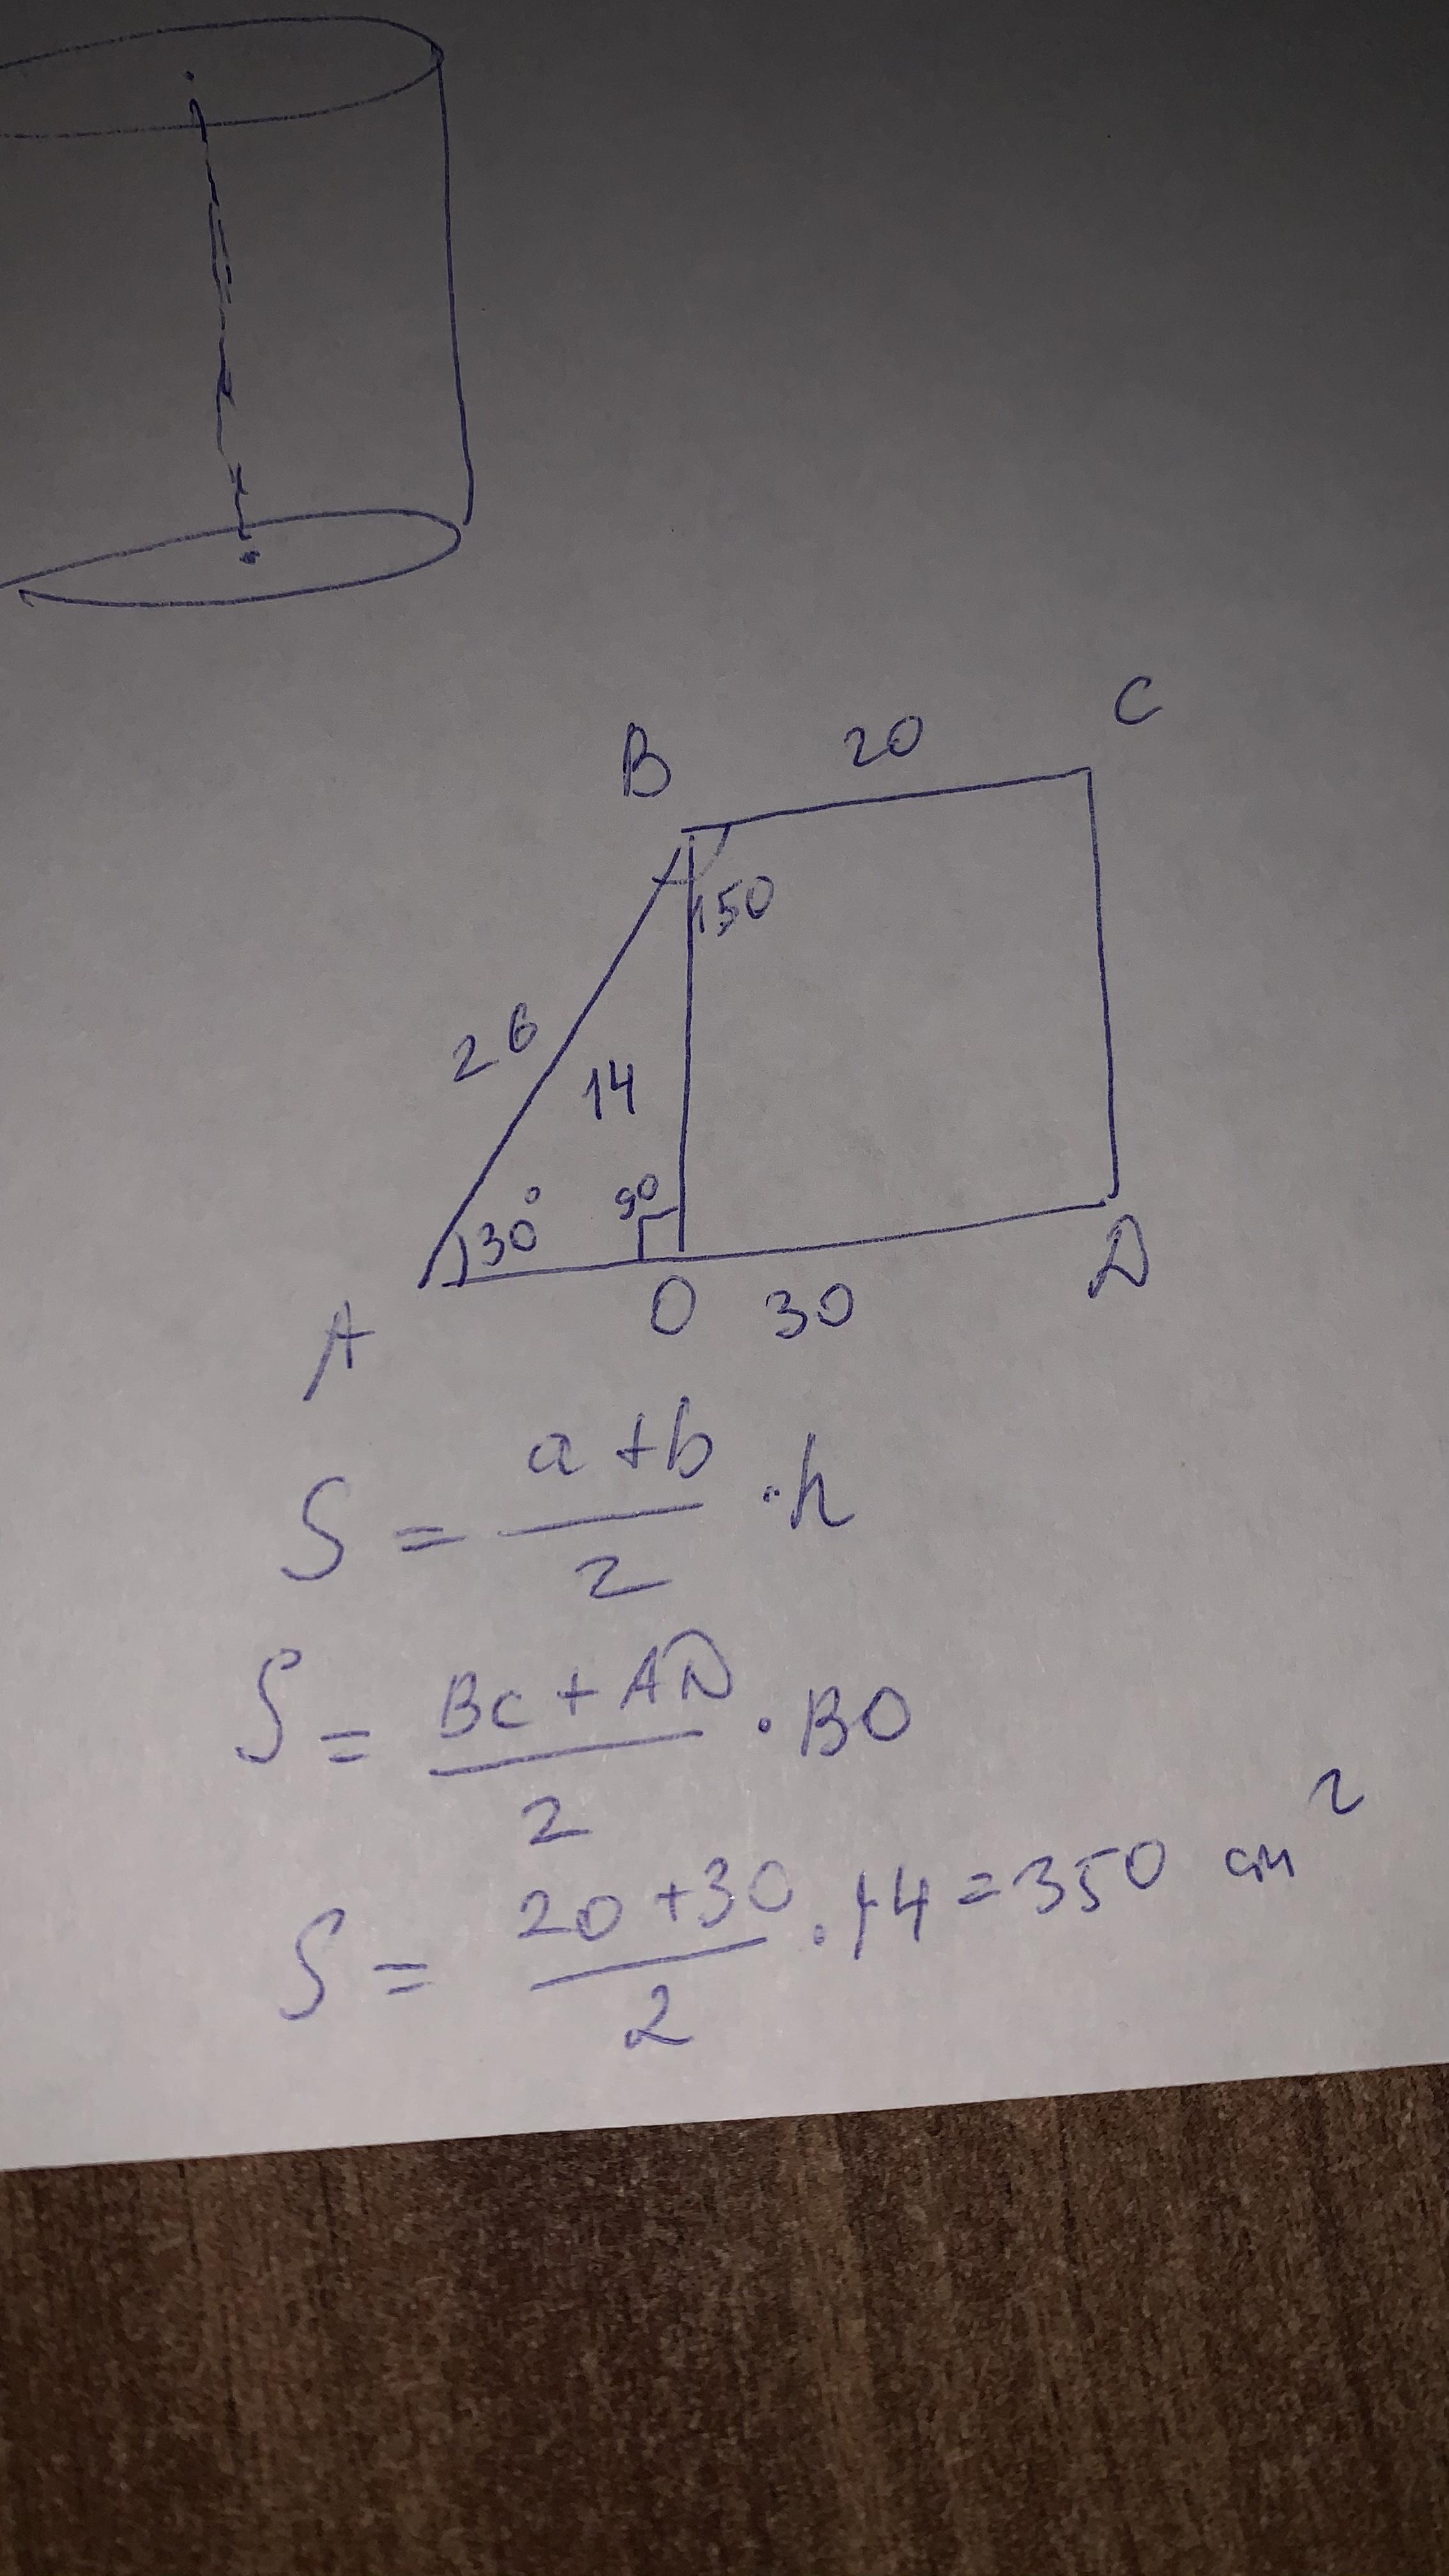 B 20 C
150
26
14
30° 90
A O 30 D
S = a+b/2 · h
S = BC+AD/2 · BO
S = 20+30/2 · 14 = 350 cm²